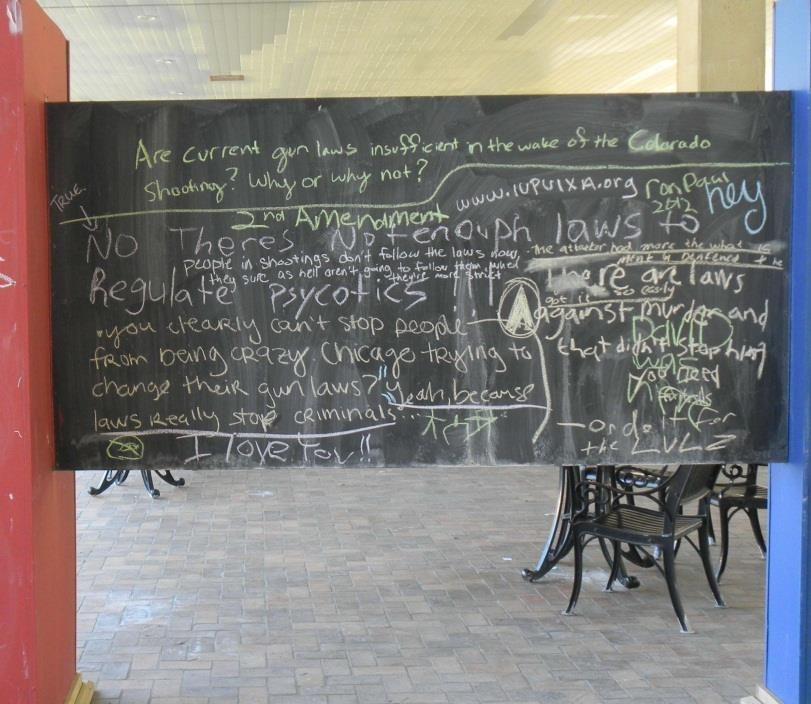 Are current gun laws insufficient in the wake of the Colorado
Shooting? Why or why not?
TRUE
www.IUPUIXA.org
Ron Paul
2012
hey
2nd Amendment
No There's Not enouph laws to
people in shootings don't follow the laws now,
they sure as hell aren't going to follow them when
they're more strict
Regulate psycotics!
The attacker had more the what is
got it so easly
there are laws
against murder and
that didn't stop him
you clearly can't stop people
from being crazy. Chicago trying to
change their gun laws? Yeah, because
laws really stop criminals...
A
DAVID
WAS
HERE
you need
- or do it for
the LULZ
I love You!!